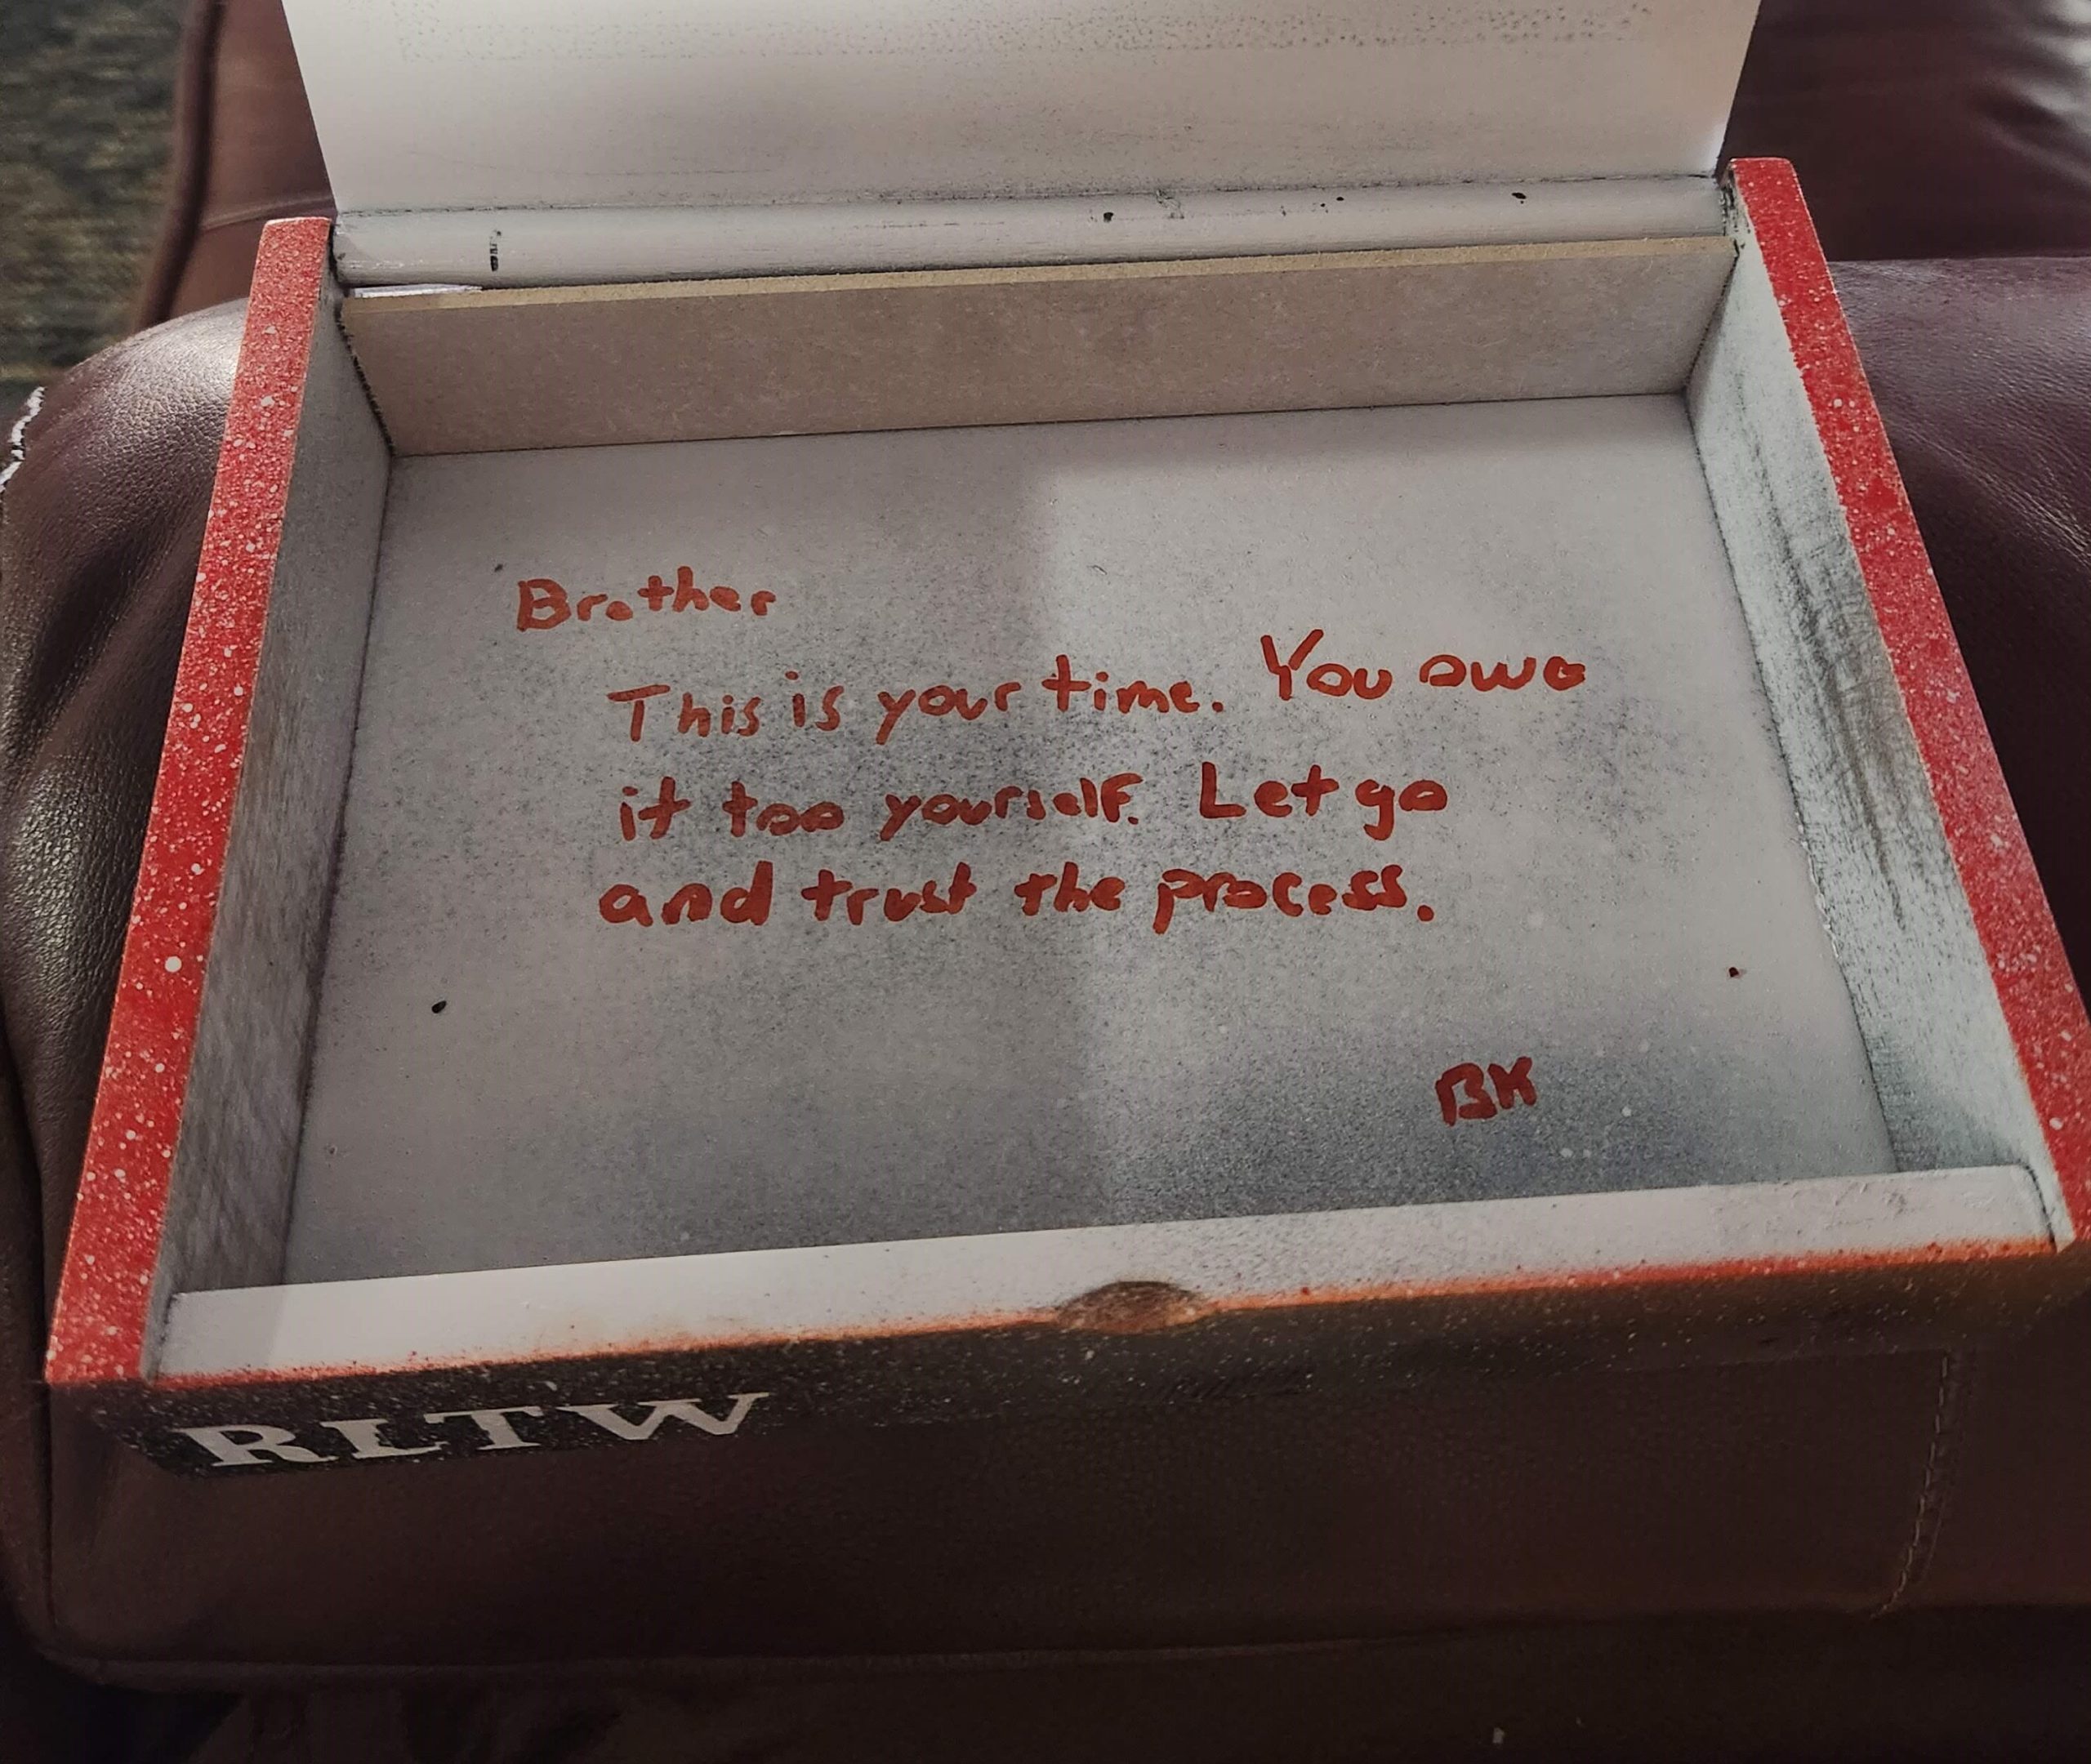 Brother
This is your time. You owe
it too yourself. Let go
and trust the process.
BK
RLTW